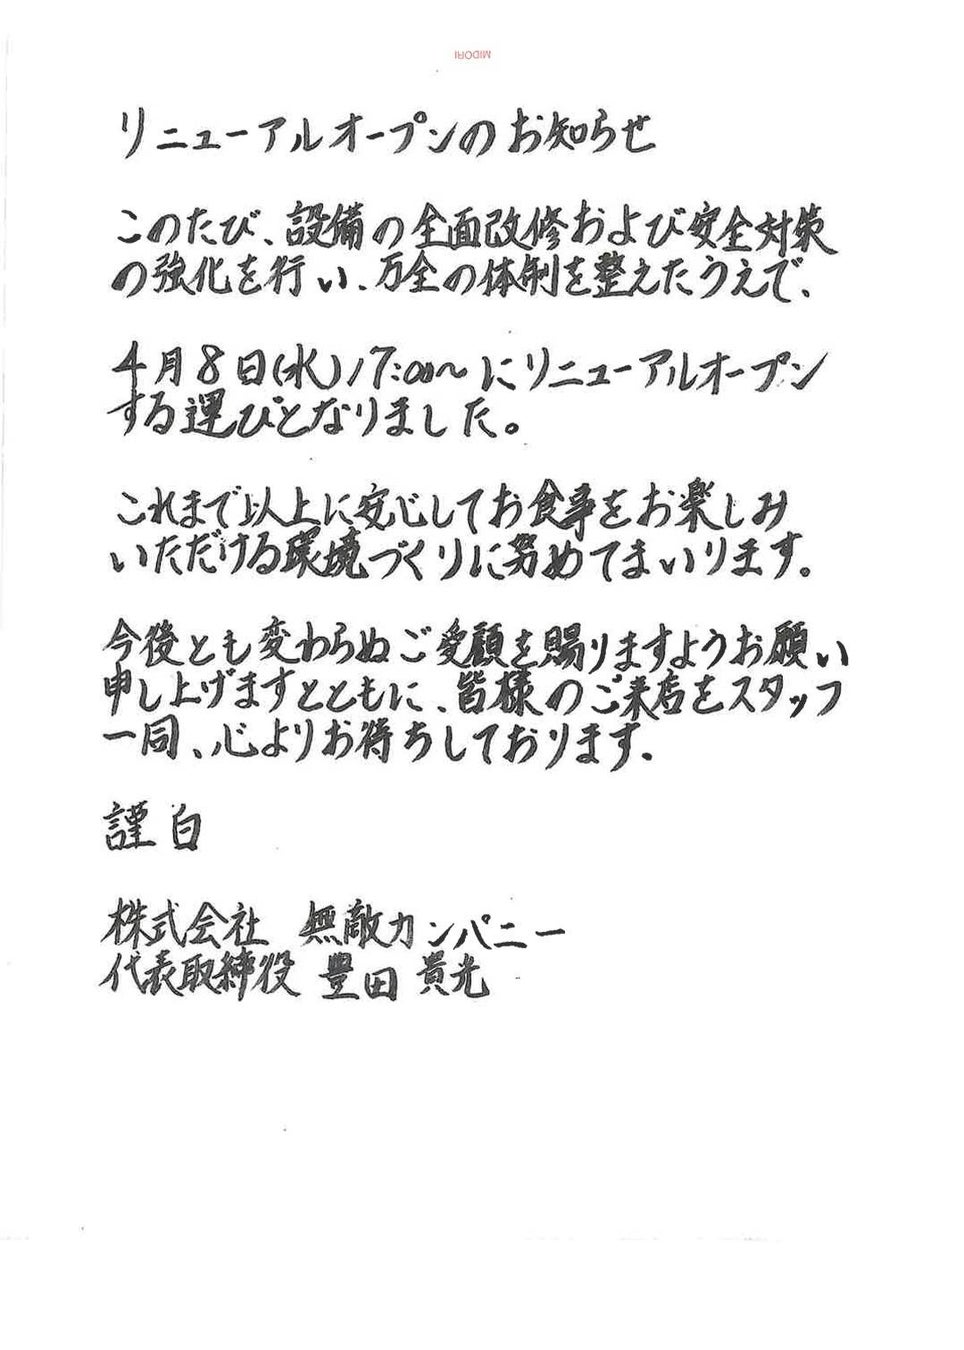 MIDORI
リニューアルオープンのお知らせ
このたび、設備の全面改修および安全対策
の強化を行い、万全の体制を整えたうえで、
4月8日(水)17:00〜にリニューアルオープン
する運びとなりました。
これまで以上に安心してお食事をお楽しみ
いただける環境づくりに努めてまいります。
今後とも変わらぬご愛顧を賜りますようお願い
申し上げますとともに、皆様のご来店をスタッフ
一同、心よりお待ちしております.
謹白
株式会社 無敵カンパニー
代表取締役 豊田 貴光